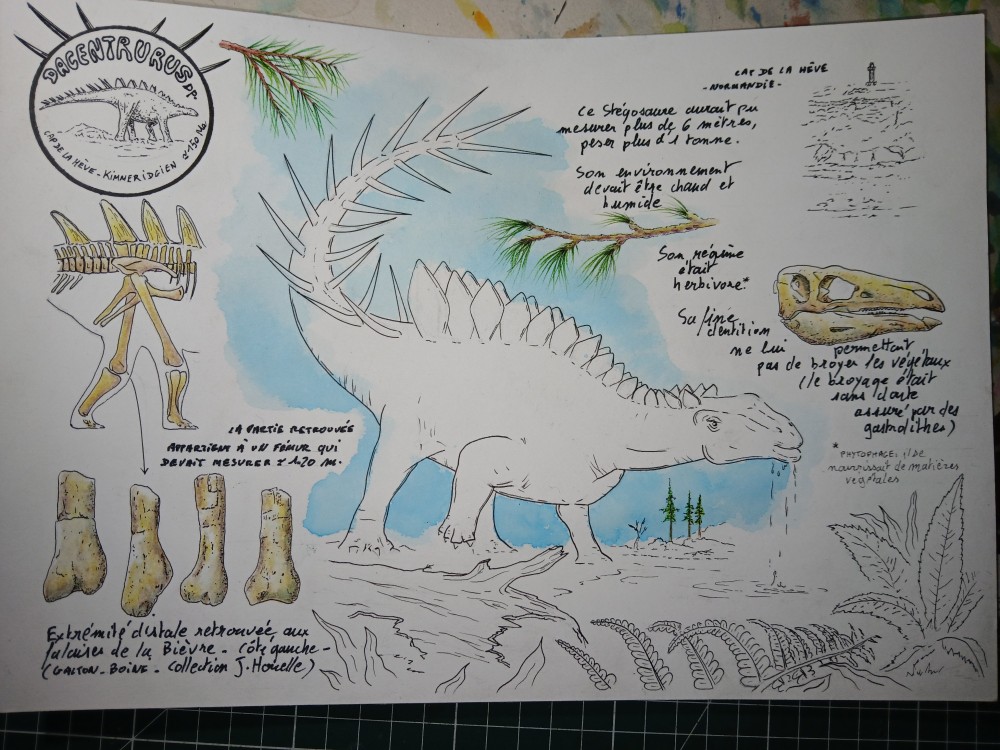 DACENTRURUS SP.
CAP DE LA HÈVE - KIMMERIDGIEN ≈ 150 Ma
CAP DE LA HÈVE
- NORMANDIE -
Ce Stégosaure aurait pu
mesurer plus de 6 mètres,
peser plus d'1 tonne.
Son environnement
devait être chaud et
humide
Son régime
était
herbivore*
Sa fine
dentition
ne lui permettait
pas de broyer les végétaux
(le broyage était
sans doute
assuré par des
gastrolithes)
* PHYTOPHAGE: il se
nourrissait de matières
végétales
LA PARTIE RETROUVÉE
APPARTIENT À UN FÉMUR QUI
DEVAIT MESURER ≈ 1m20
Extrémité distale retrouvée aux
falaises de la Bièvre - côté gauche -
(GASTON - BOINE - Collection J. Houelle)